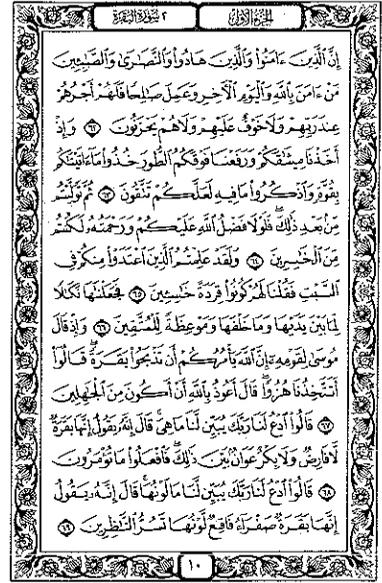 الجزء الأول
٢ سورة البقرة
إِنَّ الَّذِينَ ءَامَنُوا وَالَّذِينَ هَادُوا وَالنَّصَارَىٰ وَالصَّابِئِينَ
مَنْ ءَامَنَ بِاللَّهِ وَالْيَوْمِ الْآخِرِ وَعَمِلَ صَالِحًا فَلَهُمْ أَجْرُهُمْ
عِندَ رَبِّهِمْ وَلَا خَوْفٌ عَلَيْهِمْ وَلَا هُمْ يَحْزَنُونَ ٦٢ وَإِذْ
أَخَذْنَا مِيثَاقَكُمْ وَرَفَعْنَا فَوْقَكُمُ الطُّورَ خُذُوا مَا ءَاتَيْنَاكُم
بِقُوَّةٍ وَاذْكُرُوا مَا فِيهِ لَعَلَّكُمْ تَتَّقُونَ ٦٣ ثُمَّ تَوَلَّيْتُم
مِّن بَعْدِ ذَٰلِكَ فَلَوْلَا فَضْلُ اللَّهِ عَلَيْكُمْ وَرَحْمَتُهُ لَكُنتُم
مِّنَ الْخَاسِرِينَ ٦٤ وَلَقَدْ عَلِمْتُمُ الَّذِينَ اعْتَدَوْا مِنكُمْ فِي
السَّبْتِ فَقُلْنَا لَهُمْ كُونُوا قِرَدَةً خَاسِئِينَ ٦٥ فَجَعَلْنَاهَا نَكَالًا
لِّمَا بَيْنَ يَدَيْهَا وَمَا خَلْفَهَا وَمَوْعِظَةً لِّلْمُتَّقِينَ ٦٦ وَإِذْ قَالَ
مُوسَىٰ لِقَوْمِهِ إِنَّ اللَّهَ يَأْمُرُكُمْ أَن تَذْبَحُوا بَقَرَةً قَالُوا
أَتَتَّخِذُنَا هُزُوًا قَالَ أَعُوذُ بِاللَّهِ أَنْ أَكُونَ مِنَ الْجَاهِلِينَ
٦٧ قَالُوا ادْعُ لَنَا رَبَّكَ يُبَيِّن لَّنَا مَا هِيَ قَالَ إِنَّهُ يَقُولُ إِنَّهَا بَقَرَةٌ
لَّا فَارِضٌ وَلَا بِكْرٌ عَوَانٌ بَيْنَ ذَٰلِكَ فَافْعَلُوا مَا تُؤْمَرُونَ
٦٨ قَالُوا ادْعُ لَنَا رَبَّكَ يُبَيِّن لَّنَا مَا لَوْنُهَا قَالَ إِنَّهُ يَقُولُ
إِنَّهَا بَقَرَةٌ صَفْرَاءُ فَاقِعٌ لَّوْنُهَا تَسُرُّ النَّاظِرِينَ ٦٩
١٠